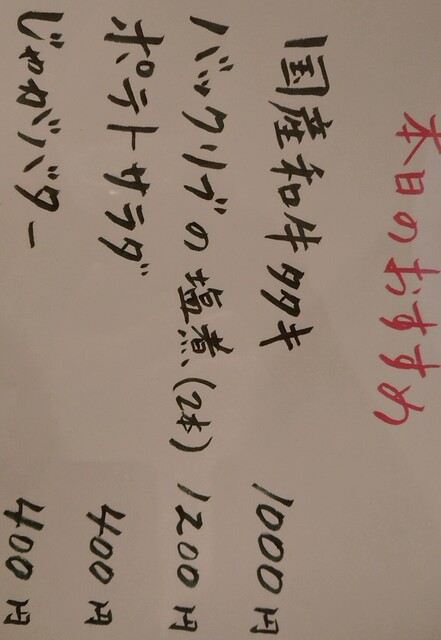 本日のおすすめ
国産和牛タタキ 1000円
バックリブの塩煮(2本) 1200円
ポテトサラダ 400円
じゃがバター 400円